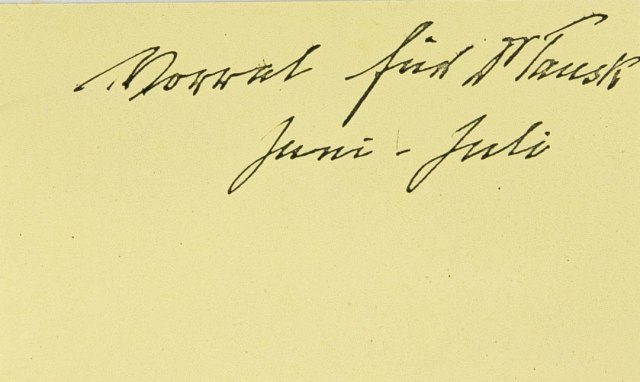 Vorrat für Dr Tausk
Juni - Juli